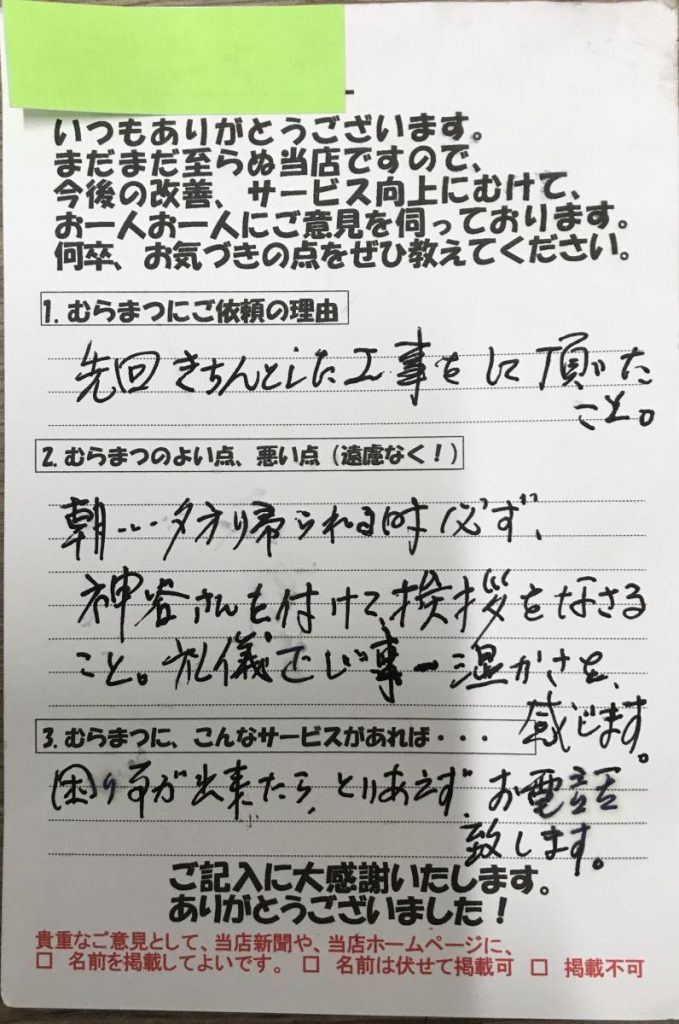 いつもありがとうございます。
まだまだ至らぬ当店ですので、
今後の改善、サービス向上にむけて、
お一人お一人にご意見を伺っております。
何卒、お気づきの点をぜひ教えてください。
1. むらまつにご依頼の理由
先回きちんとした工事をして頂いた
こと。
2. むらまつのよい点、悪い点（遠慮なく！）
朝…夕方り帰られる時必ず、
神谷さんを付けて、挨拶をなさる
こと。礼儀正しい事ー温かさを、
感じます。
3. むらまつに、こんなサービスがあれば・・・
困り事が出来たら、とりあえず、お電話
致します。
ご記入に大感謝いたします。
ありがとうございました！
貴重なご意見として、当店新聞や、当店ホームページに、
□ 名前を掲載してよいです。 □ 名前は伏せて掲載可 □ 掲載不可